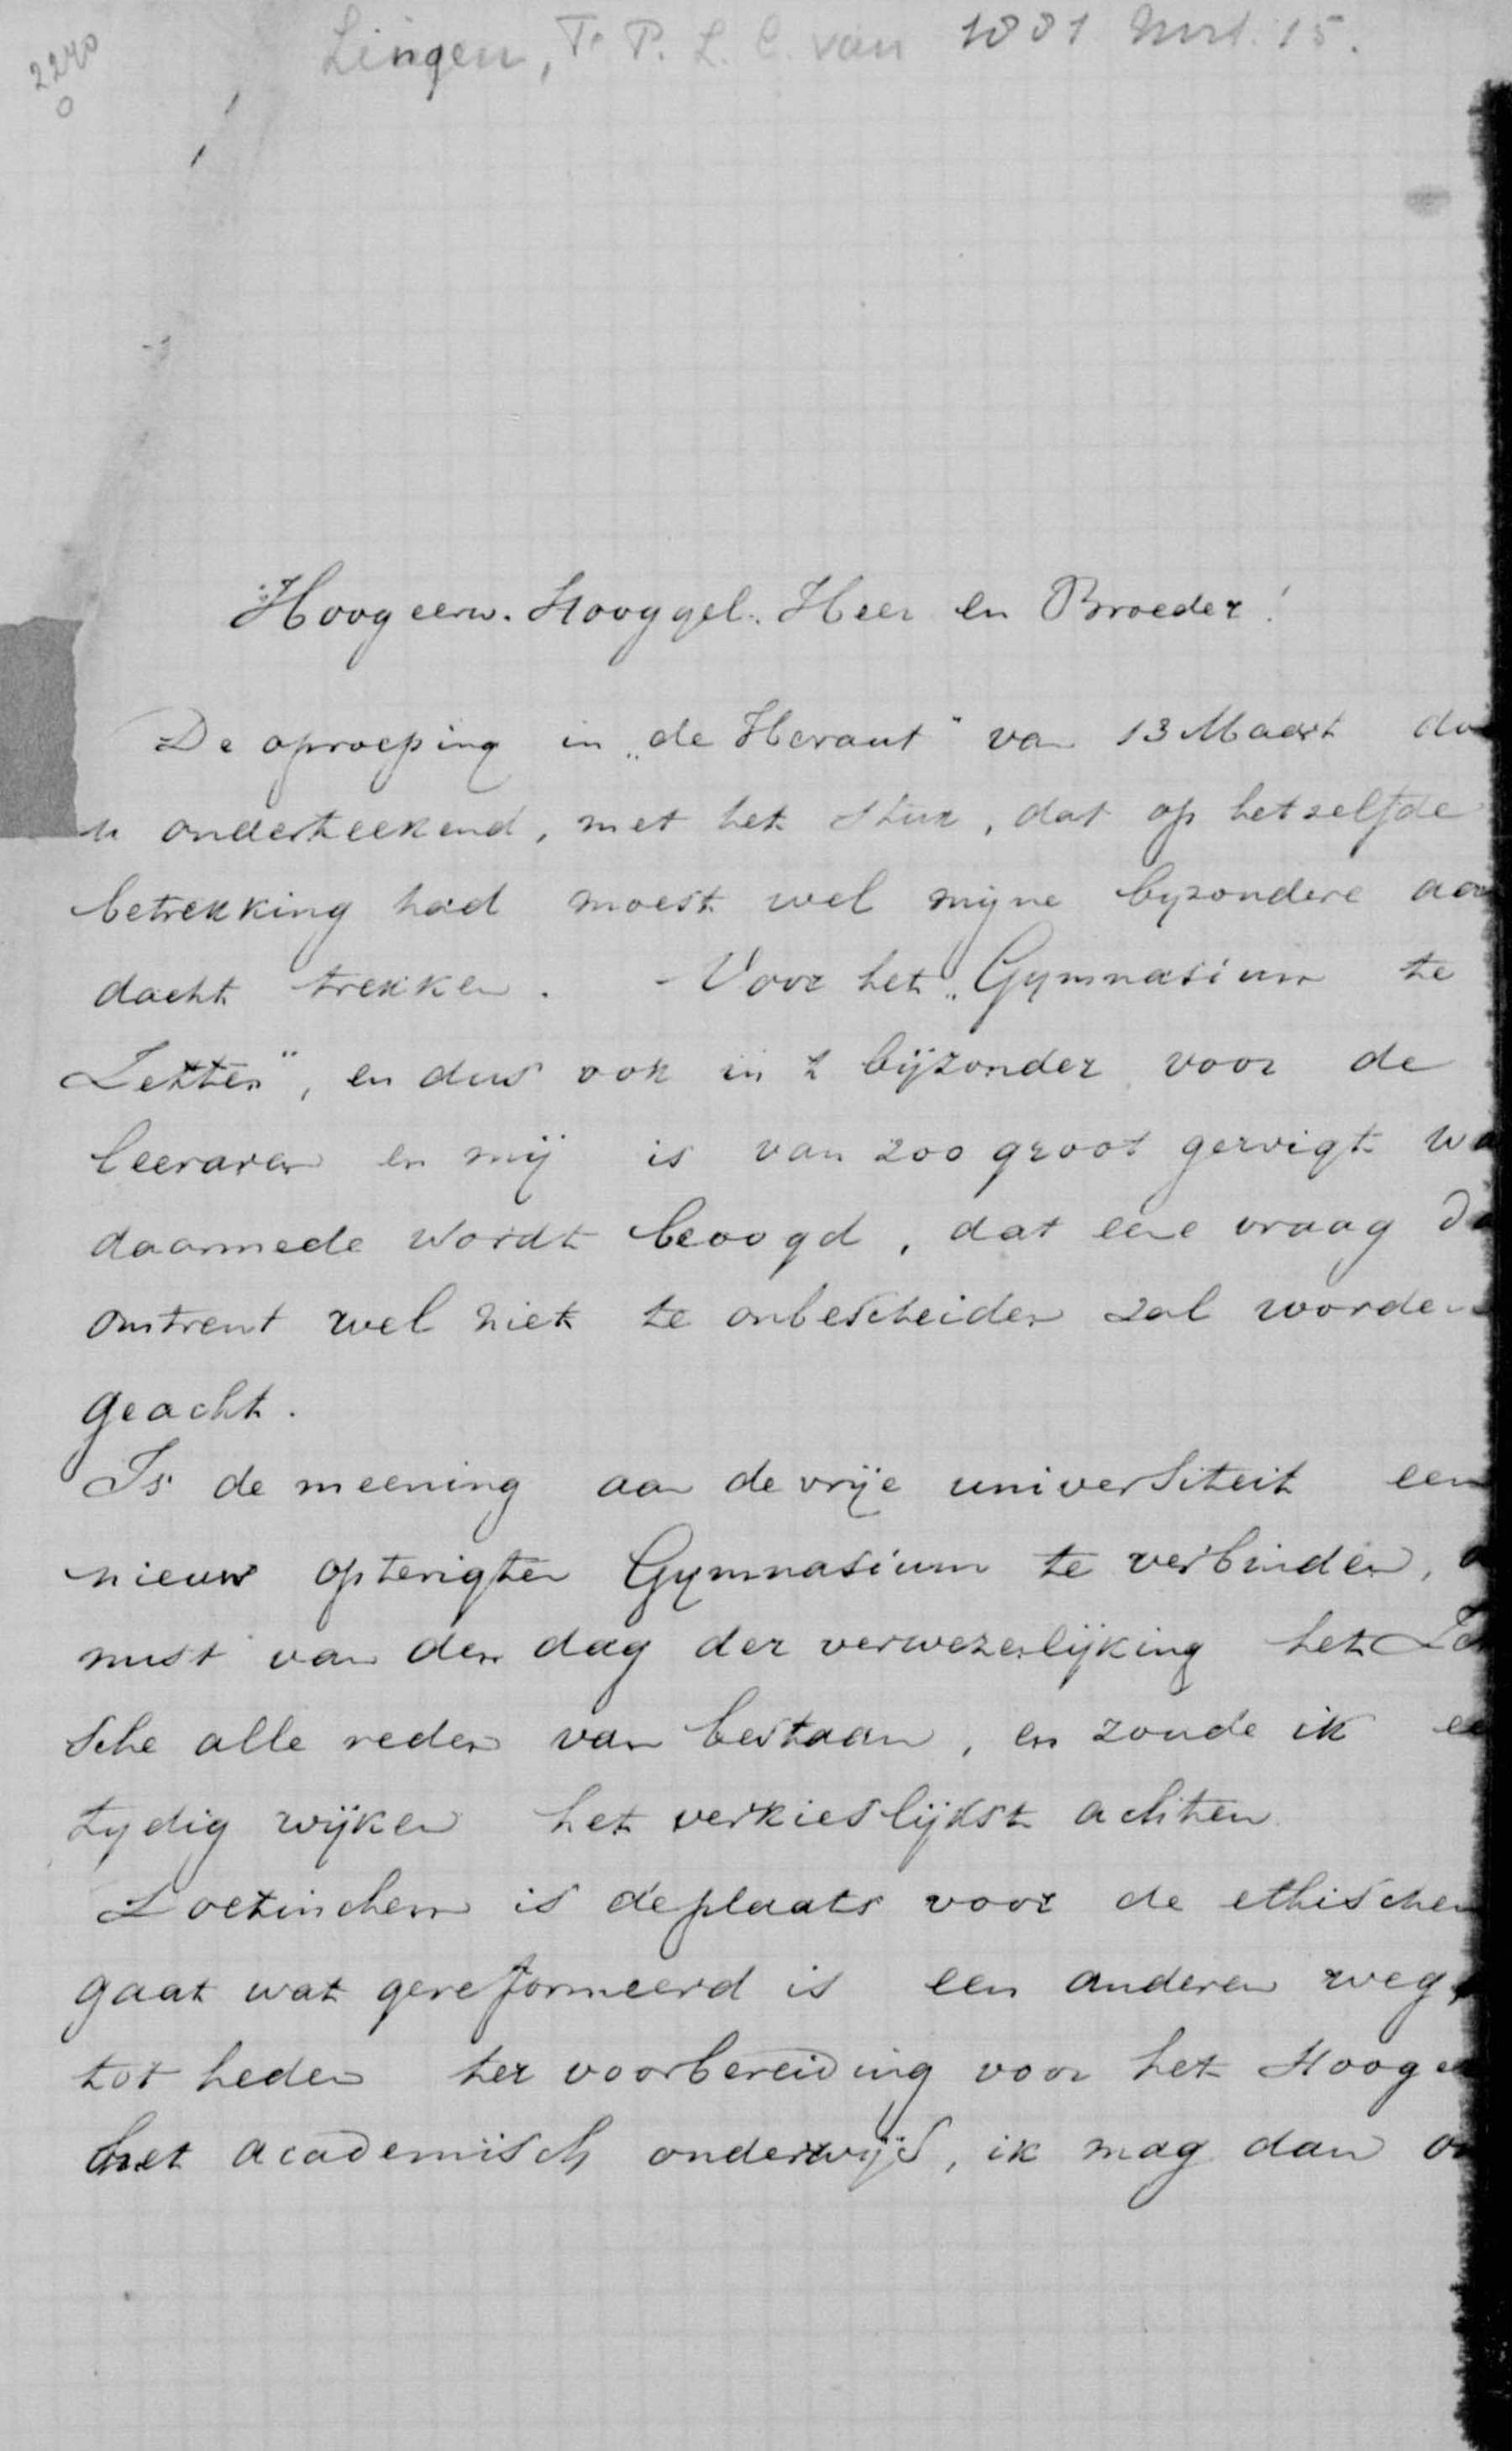 2240
0
Lingen, F. P. L. C. van 1881 Mrt. 15.
Hoogeerw. Hooggel. Heer en Broeder!
De oproeping in „de Heraut" van 13 Maart do
u onderteekend, met het stuk, dat op hetzelfde
betrekking had moest wel mijne byzondere aan
dacht trekken. - Voor het „Gymnasium te
Zetten", en dus ook in 't bijzonder voor de
leeraren en mij is van zoo groot gewigt wa
daarmede wordt beoogd, dat eene vraag da
omtrent wel niet te onbescheiden zal worden
geacht.
Is de meening aan de vrije universiteit een
nieuw opterigten Gymnasium te verbinden,
mist van den dag der verwezenlijking het Ze
sche alle reden van bestaan, en zoude ik
tydig wijken het verkieslijkst achten
Doetinchem is de plaats voor de ethischen
gaat wat gereformeerd is een anderen weg,
tot heden ter voorbereiding voor het Hooge
het academisch onderwijs, ik mag dan